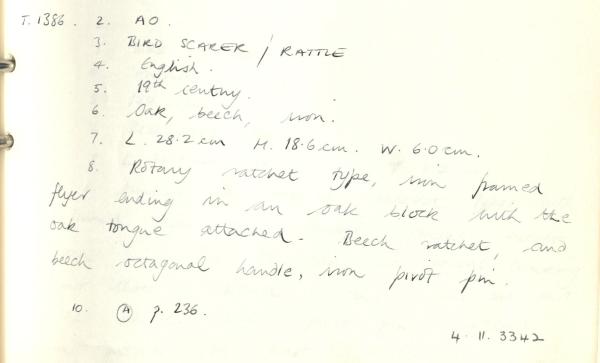 T. 1386. 2. AO.
3. BIRD SCARER / RATTLE
4. English.
5. 19th century.
6. Oak, beech, iron.
7. L. 28.2cm H. 18.6cm. W. 6.0cm.
8. Rotary ratchet type, iron framed
flyer ending in an oak block with the
oak tongue attached. Beech ratchet, and
beech octagonal handle, iron pivot pin.
10. A p. 236.
4. 11. 3342